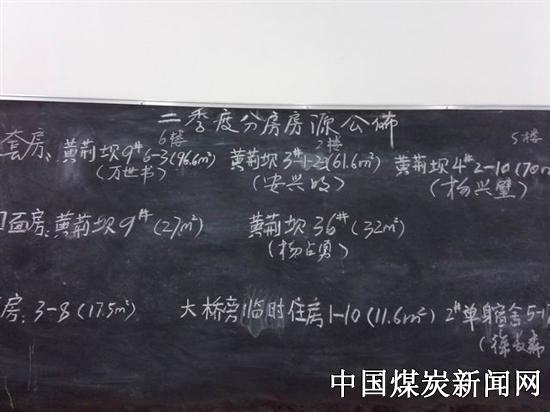 二季度分房房源公佈
6楼 2楼 5楼
套房、黄荆坝9#6-3(96.6m²) 黄荆坝3#1-2(61.6m²) 黄荆坝4#2-10(70m
(万世书) (安兴 (杨兴璧)
面房、黄荆坝9#(27m²) 黄荆坝36#(32m²)
(杨占勇)
房:3-8(17.5m²) 大桥旁临时住房1-10(11.6m²) 2#单身宿舍5-1
(徐
中国煤炭新闻网